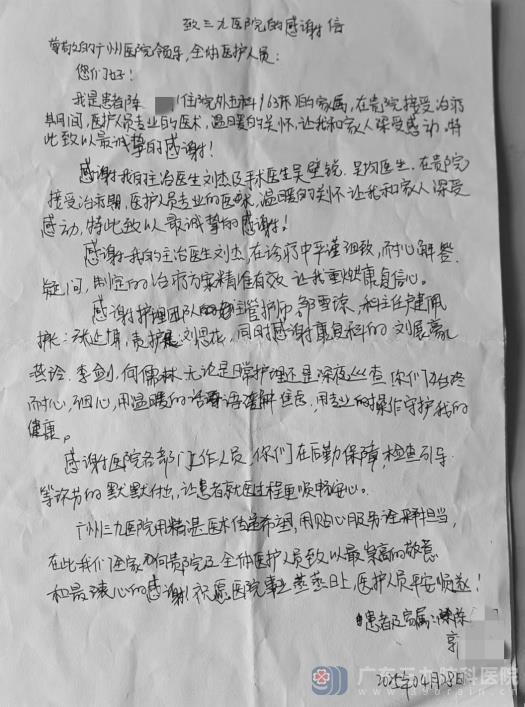 致三九医院的感谢信
尊敬的广州医院领导,全体医护人员:
您们好!
我是患者陈 (住院外五科/63床)的家属,在贵院接受治疗
其间,医护人员专业的医术,温暖的关怀,让我和家人深受感动,特
此致以最诚挚的感谢!
感谢我的主治医生刘杰及手术医生吴壁锐、吴均医生,在贵院
接受治疗期,医护人员专业的医术,温暖的关怀让我和家人深受
感动,特此致以最诚挚的感谢!
感谢我的主治医生刘杰在诊疗中严谨细致,耐心解答
疑问,制定的治疗方案精准有效,让我重燃康复信心。
感谢护理团队的主管护师邹雪琼,科主任
护长:张 ,责护 刘思花,同时感谢康复科的刘展豪
李剑、何儒林无论是日常护理还是深夜巡查,你们始终
耐心,细心,用温暖的话语缓解焦虑,用专业的操作守护我的
健康。
感谢医院各部门工作人员,你们在后勤保障,检查引导
等环节的默默付出,让患者就医过程更顺畅安心。
广州三九医院用精湛医术传递希望,用贴心服务诠释担当,
在此我们全家向贵院及全体医护人员致以最崇高的敬意
和最衷心的感谢!祝愿医院事业蒸蒸日上,医护人员平安顺遂!
患者及家属:陈
亨
2025年04月28日
广东三九脑科医院
www.39brain.cn